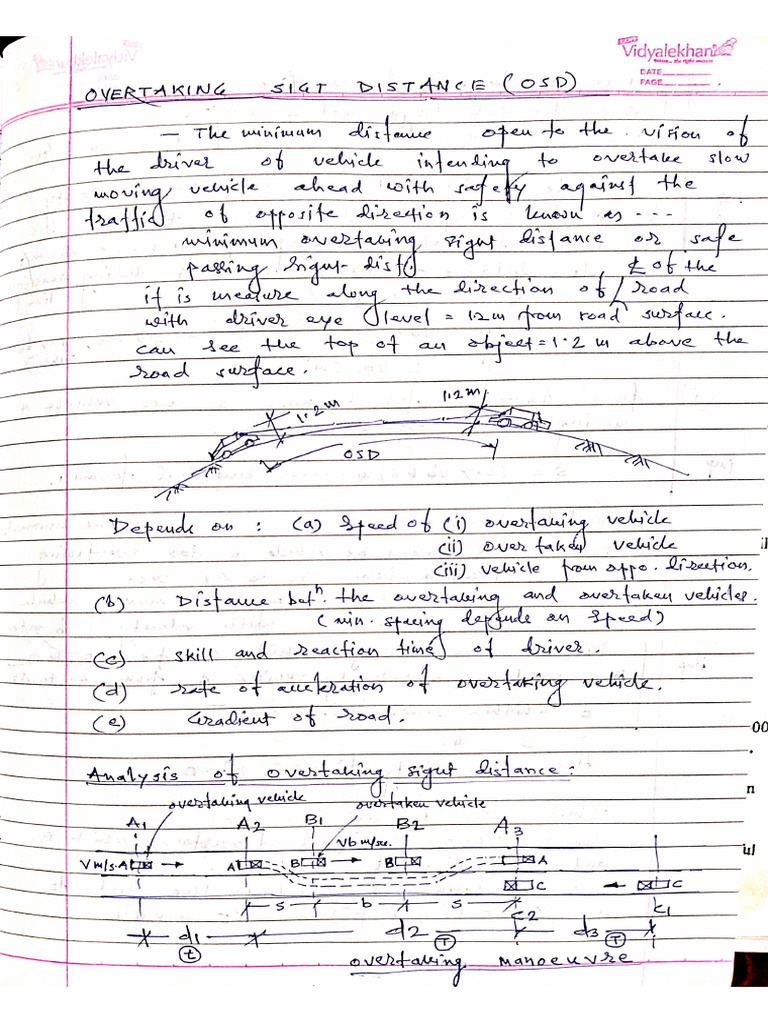 Vidyalekhan
DATE
PAGE
OVERTAKING SIGT DISTANCE (OSD)
- The minimum distance open to the vision of
the driver of vehicle intending to overtake slow
moving vehicle ahead with safety against the
traffic of opposite direction is known as ---
minimum overtaking sight distance or safe
passing sight dist(.)
℄ of the
it is measure along the direction of / road
with driver eye level = 1.2m from road surface.
can see the top of an object = 1.2 m above the
road surface.
1.2m
1.2m
OSD
Depends on : (a) Speed of (i) overtaking vehicle
(ii) over taken vehicle
(iii) vehicle from oppo. direction.
(b) Distance betn. the overtaking and overtaken vehicles.
(min. spacing depends on speed)
(c) skill and reaction time of driver.
(d) rate of accleration of overtaking vehicle.
(e) Gradient of road.
Analysis of overtaking sight distance :
overtaking vehicle overtaken vehicle
A1 A2 B1 B2 A3
Vb m/sec.
V m/s. A A B B A
C C
S b S C2 C1
d1 d2 d3
t T T
overtaking manoeuvre